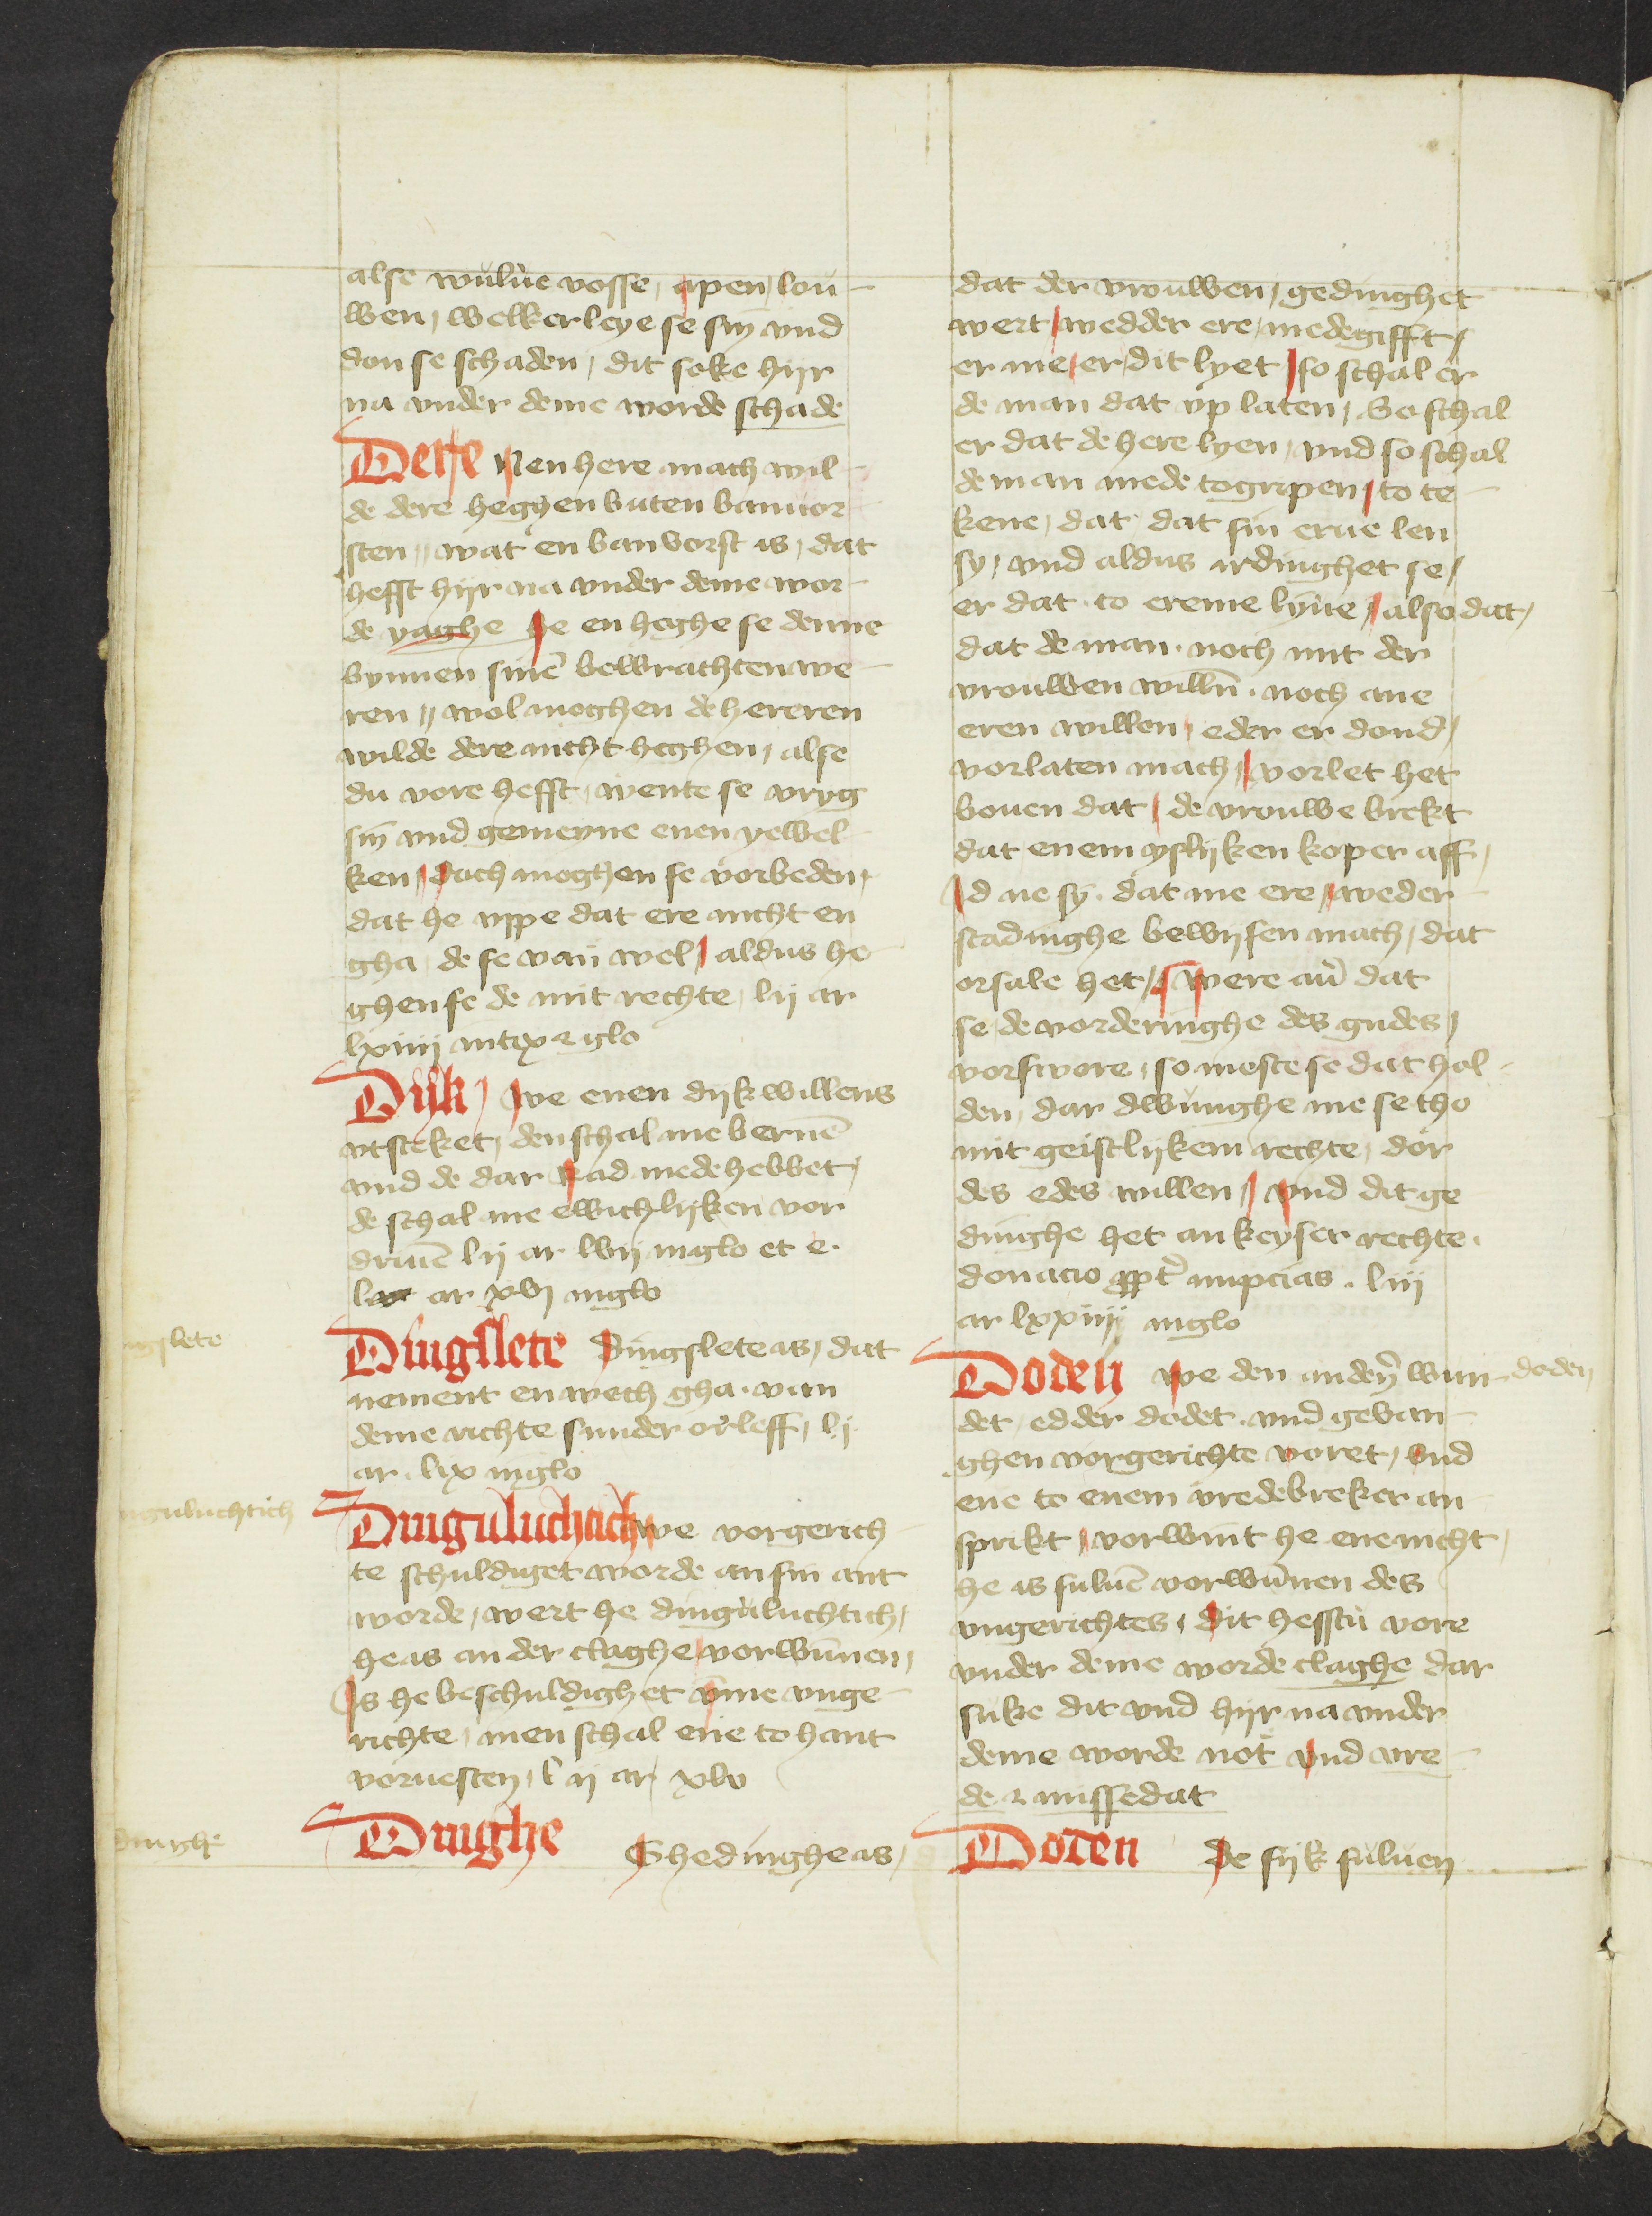 alse wulue vosse, apen, lou-
wen, welkerleye se sin vnd
don se schaden, dit soke hijr
na vnder deme worde schade
Dere Nen here mach wil-
de dere heghen buten banuor-
sten, wat en banvorst is, dat
hefft hijr na vnder deme wor-
de yaghe he en heghe se denne
bynnen sinē bewrachten we-
ren, wol moghen de hereren
wilde dere nicht heghen, alse
du vore hefft, wente se vryg
sin vnd gemeyne enen yewel-
ken, doch moghen se vorbeden,
dat he vppe dat ere nicht en
gha, de se van wel, aldus he-
ghen se de mit rechte, lij ar
lxiiij
Dijk, we enen dijk willens
vtsteket, den schal me bernē
vnd de dar Rad mede hebbet,
de schal me ewichlijken vor
driuē lij ar lvij inglo et e.
ar xvj inglo
ngslete
Dingslete Dingslete is, dat
nement en wech gha van
deme richte sunder orleff, lj
ar. lix inglo
nguluchtich
Dinguluchtich we vorgerich-
te schuldiget worde an sin ant
worde, wert he dinguluchtich,
he is an der claghe vorwunnen,
Is he beschuldighet vmme vnge-
richte, men schal ene to hant
voruesten, lij ar xlv
dinghe
Dinghe Ghedinghe is,
dat der vrouwen, gedinghet
wert, wedder ere, medegifft,
er me, er, dit lyet, so schal er
de man dat vp laten, So schal
er dat de here lyen, vnd so schal
de man mede togripen, to te-
kene, dat dat sin erue len
sy, vnd aldus irdinghet se,
er dat to ereme lyue, also dat,
dat de man noch mit der
vrouwen willn̄ noch ane
eren willen, eder er dond,
vorlaten mach, vorlet het
bouen dat, de vrouwe brekt
dat enem yslijken koper aff,
Id ne sy dat me ere, weder
stadinghe bewijsen mach, dat
orsale het, were au̅ dat
se de vorderinghe des gudes,
vorswore, so moste se dat hol-
den, dar dwunghe me se tho
mit geistlijkem rechte, dor
des edes willen, vnd dit ge
dinghe het an keyser rechte.
donacio ꝓpt̄ nupcias. liij
ar lxxiiij inglo
Doden we den anderꝫ wun-
doden
det, edder dodet. vnd gevan-
ghen vorgerichte voret, vnd
ene to enem vredebreker an
sprikt, vorwint he ene nicht,
he is suluē vorwunnen des
vngerichtes, dit hefstu vore
vnder deme worde claghe dar
suke dit vnd hijr na vnder
deme worde not vnd vre-
de. missedat
Doden De sijk suluen